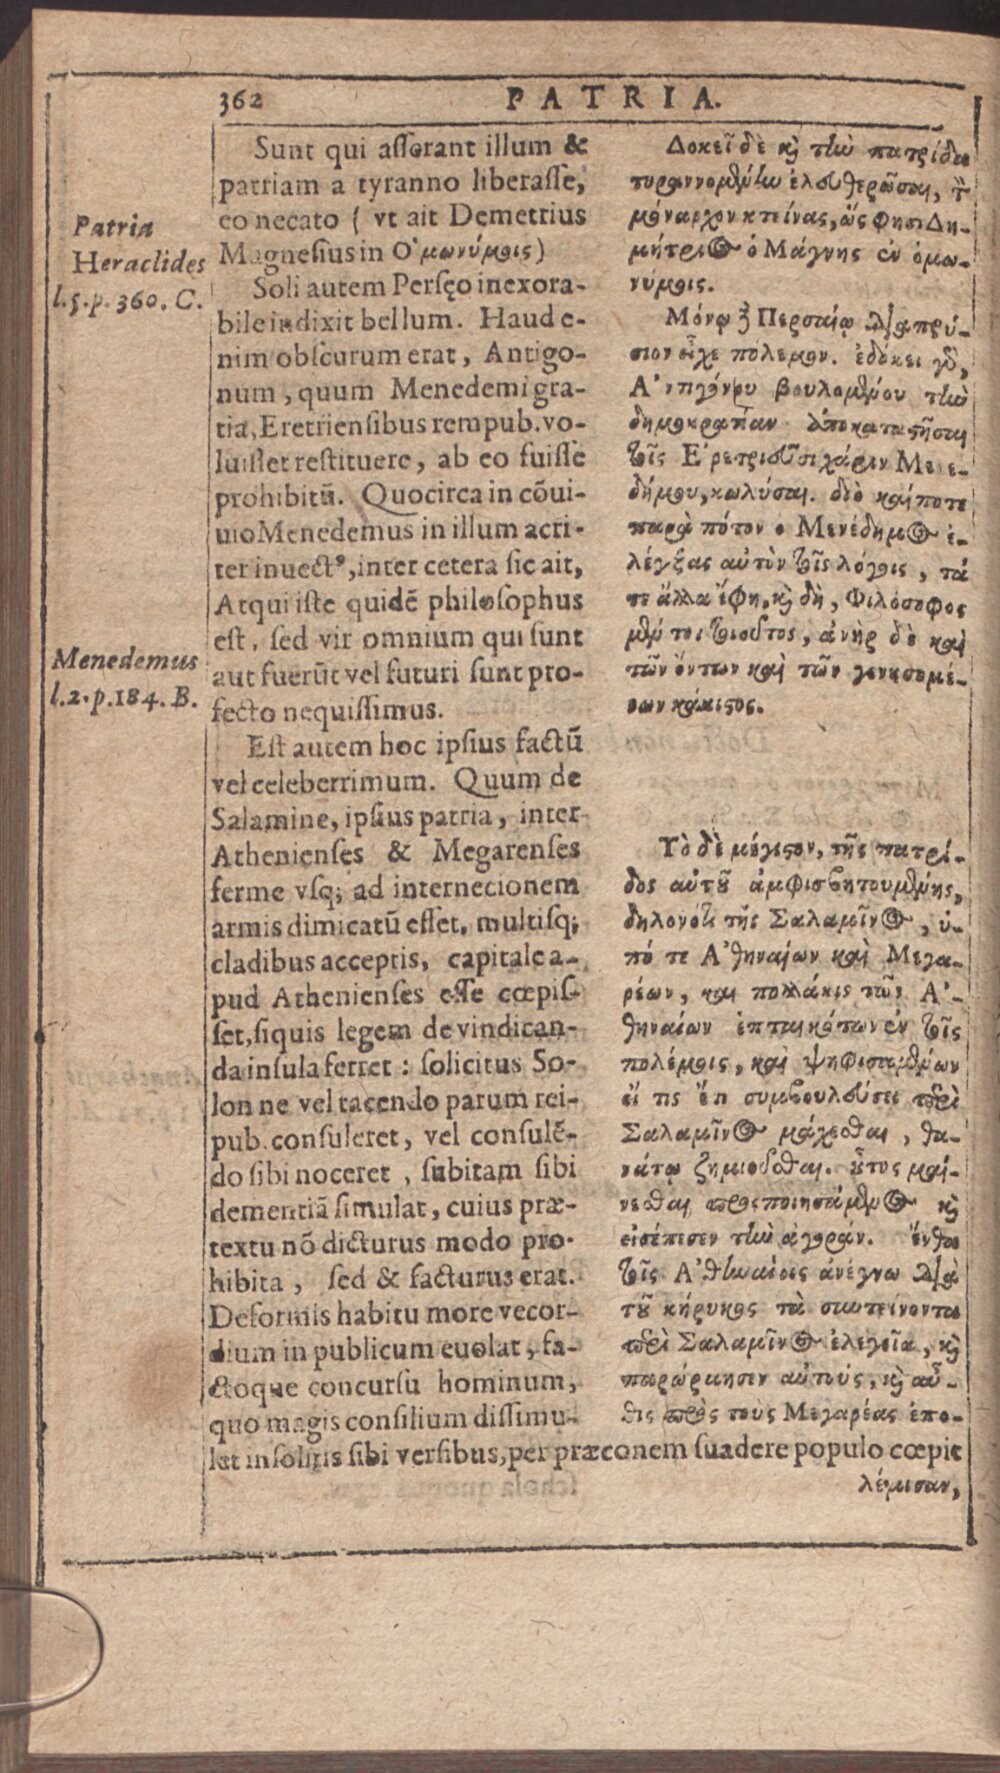 362
PATRIA.
Patria
Heraclides
l.5.p.360.C.
Menedemus
l.2.p.184.B.
Sunt qui asserant illum &
patriam a tyranno liberasse,
eo necato ( vt ait Demetrius
Magnesius in Ὁμωνύμοις)
Soli autem Persęo inexora-
bile indixit bellum. Haud e-
nim obscurum erat, Antigo-
num, quum Menedemi gra-
tia, Eretriensibus rempub. vo-
luisset restituere, ab eo fuisse
prohibitū. Quocirca in cōui-
uio Menedemus in illum acri-
ter inuectꝰ, inter cetera sic ait,
Atqui iste quidē philosophus
est, sed vir omnium qui sunt
aut fuerūt vel futuri sunt pro-
fecto nequissimus.
Est autem hoc ipsius factū
vel celeberrimum. Quum de
Salamine, ipsius patria, inter
Athenienses & Megarenses
ferme vsq; ad internecionem
armis dimicatū esset, multisq;
cladibus acceptis, capitale a-
pud Athenienses esse cœpis-
set, siquis legem de vindican-
da insula ferret : solicitus So-
lon ne vel tacendo parum rei-
pub. consuleret, vel consulē-
do sibi noceret , subitam sibi
dementiā simulat, cuius præ-
textu nō dicturus modo pro-
hibita , sed & facturus erat.
Deformis habitu more vecor-
dium in publicum euolat, fa-
ctoque concursu hominum,
quo magis consilium dissimu-
let insolitis sibi versibus, per præconem suadere populo cœpit
Δοκεῖ δὲ κὶ τὴν πατρίδα
τυραννουμένην ἐλευθερῶσαι, τὸν
μόναρχον κτείνας, ὥς φησι Δη-
μήτριος ὁ Μάγνης ἐν ὁμω-
νύμοις.
Μόνῳ δὲ Περσαίῳ διαπρύ-
σιον εἶχε πόλεμον. ἐδόκει γὰρ,
Ἀντιγόνου βουλομένου τὴν
δημοκρατίαν ἀποκαταστῆσαι
τοῖς Ἐρετριεῦσι χάριν Μενε-
δήμου, κωλύσαι. διὸ καί ποτε
παρὰ πότον ὁ Μενέδημος ἐ-
λέγξας αὐτὸν τοῖς λόγοις , τά
τε ἄλλα ἔφη, κὶ δὴ, Φιλόσοφος
μέν τοι τοιοῦτος, ἀνὴρ δὲ καὶ
τῶν ὄντων καὶ τῶν γενησομέ-
νων κάκιστος.
Τὸ δὲ μέγιστον, τῆς πατρί-
δος αὐτοῦ ἀμφισβητουμένης,
δηλονότι τῆς Σαλαμῖνος , ὑ-
πό τε Ἀθηναίων καὶ Μεγα-
ρέων, καὶ πολλάκις τῶν Ἀ-
θηναίων ἐπταικότων ἐν τοῖς
πολέμοις, καὶ ψηφισαμένων
εἴ τις ἔτι συμβουλεύσει περὶ
Σαλαμῖνος μάχεσθαι , θα-
νάτῳ ζημιοῦσθαι. οὗτος μαί-
νεσθαι προςποιησάμενος κὶ
εἰσέπεσεν τὴν ἀγοράν. ἔνθα
τοῖς Ἀθηναίοις ἀνέγνω διὰ
τοῦ κήρυκος τὰ συντείνοντα
περὶ Σαλαμῖνος ἐλεγεῖα , κὶ
παρώρμησεν αὐτούς, κὶ αὖ-
θις πρὸς τοὺς Μεγαρέας ἐπο-
λέμισαν,